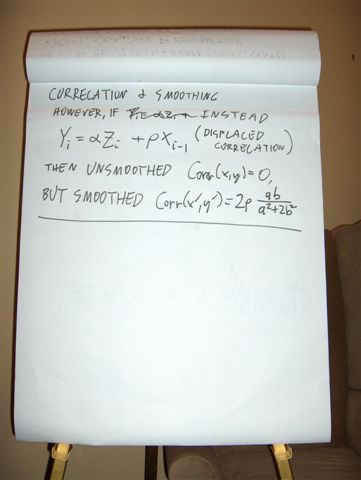 CORRELATION & SMOOTHING
HOWEVER, IF INSTEAD
Yᵢ = αZᵢ + ρXᵢ₋₁ (DISPLACED CORRELATION)
THEN UNSMOOTHED Corr(x,y)=0,
BUT SMOOTHED Corr(x',y')=2ρ ab/(a²+2b²)